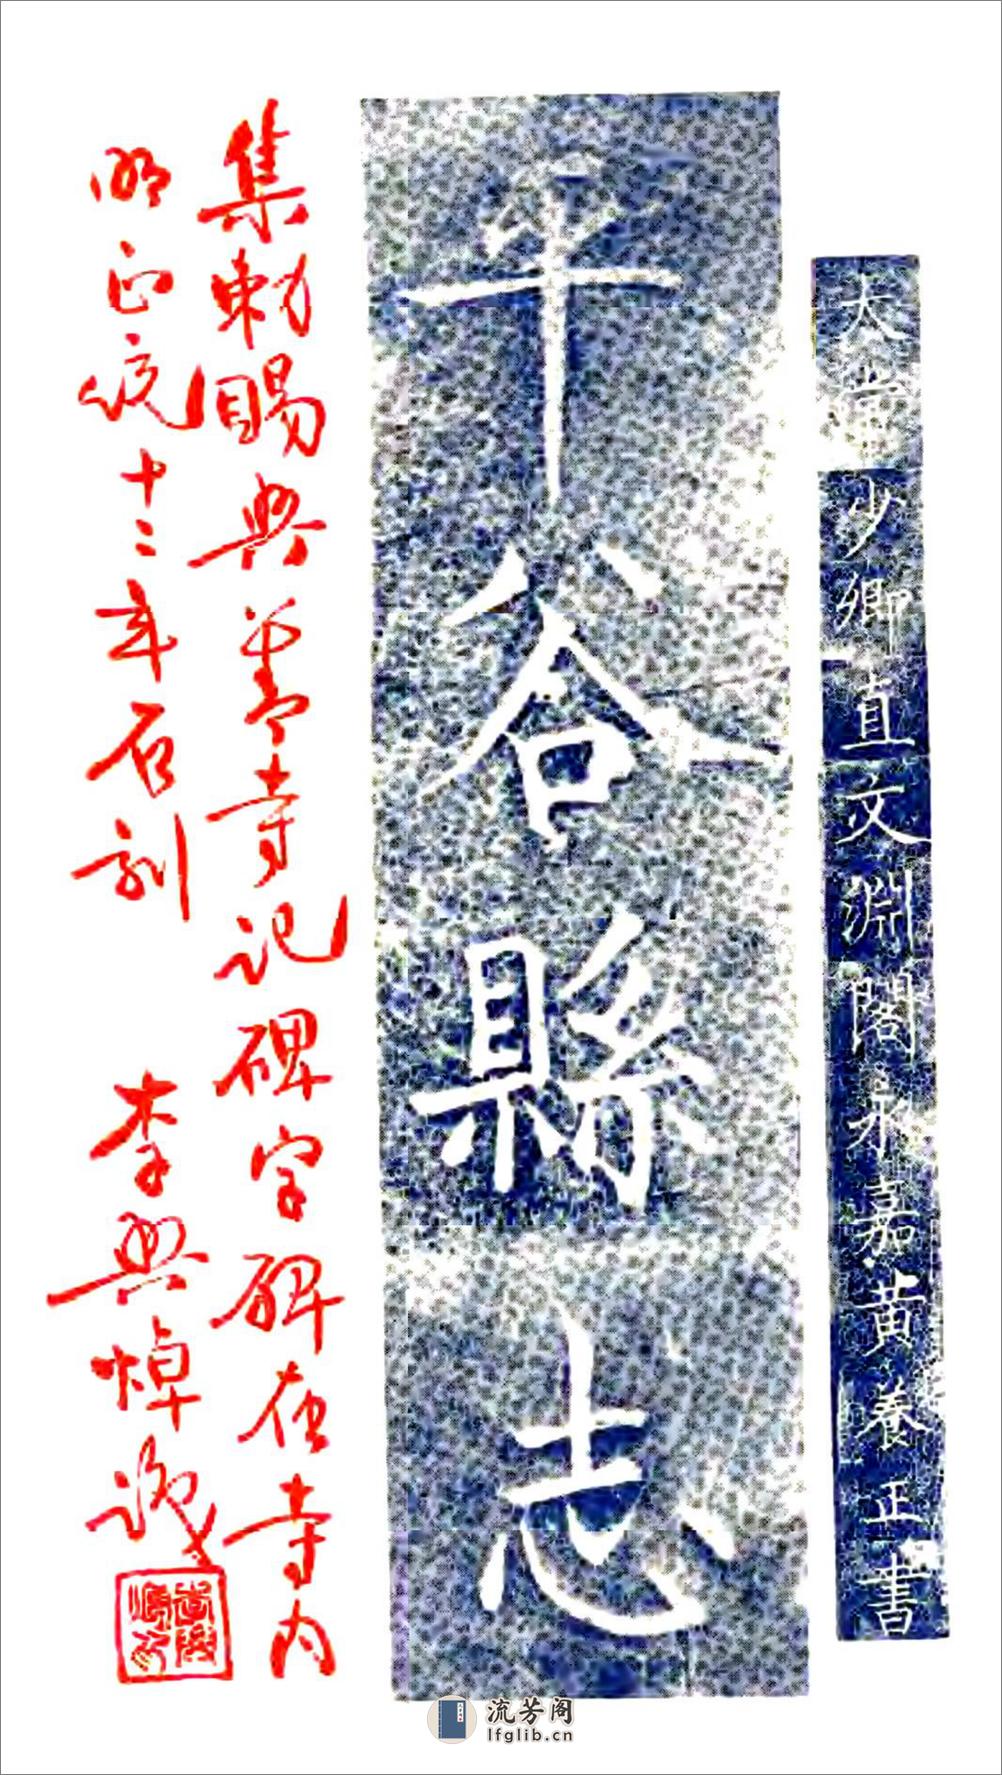 太常少卿直文淵閣永嘉黃養正書
平谷縣志
集勅賜興善寺記碑字碑在寺内
明正统十二年石刻
李興焯識
流芳阁
lfglib.cn